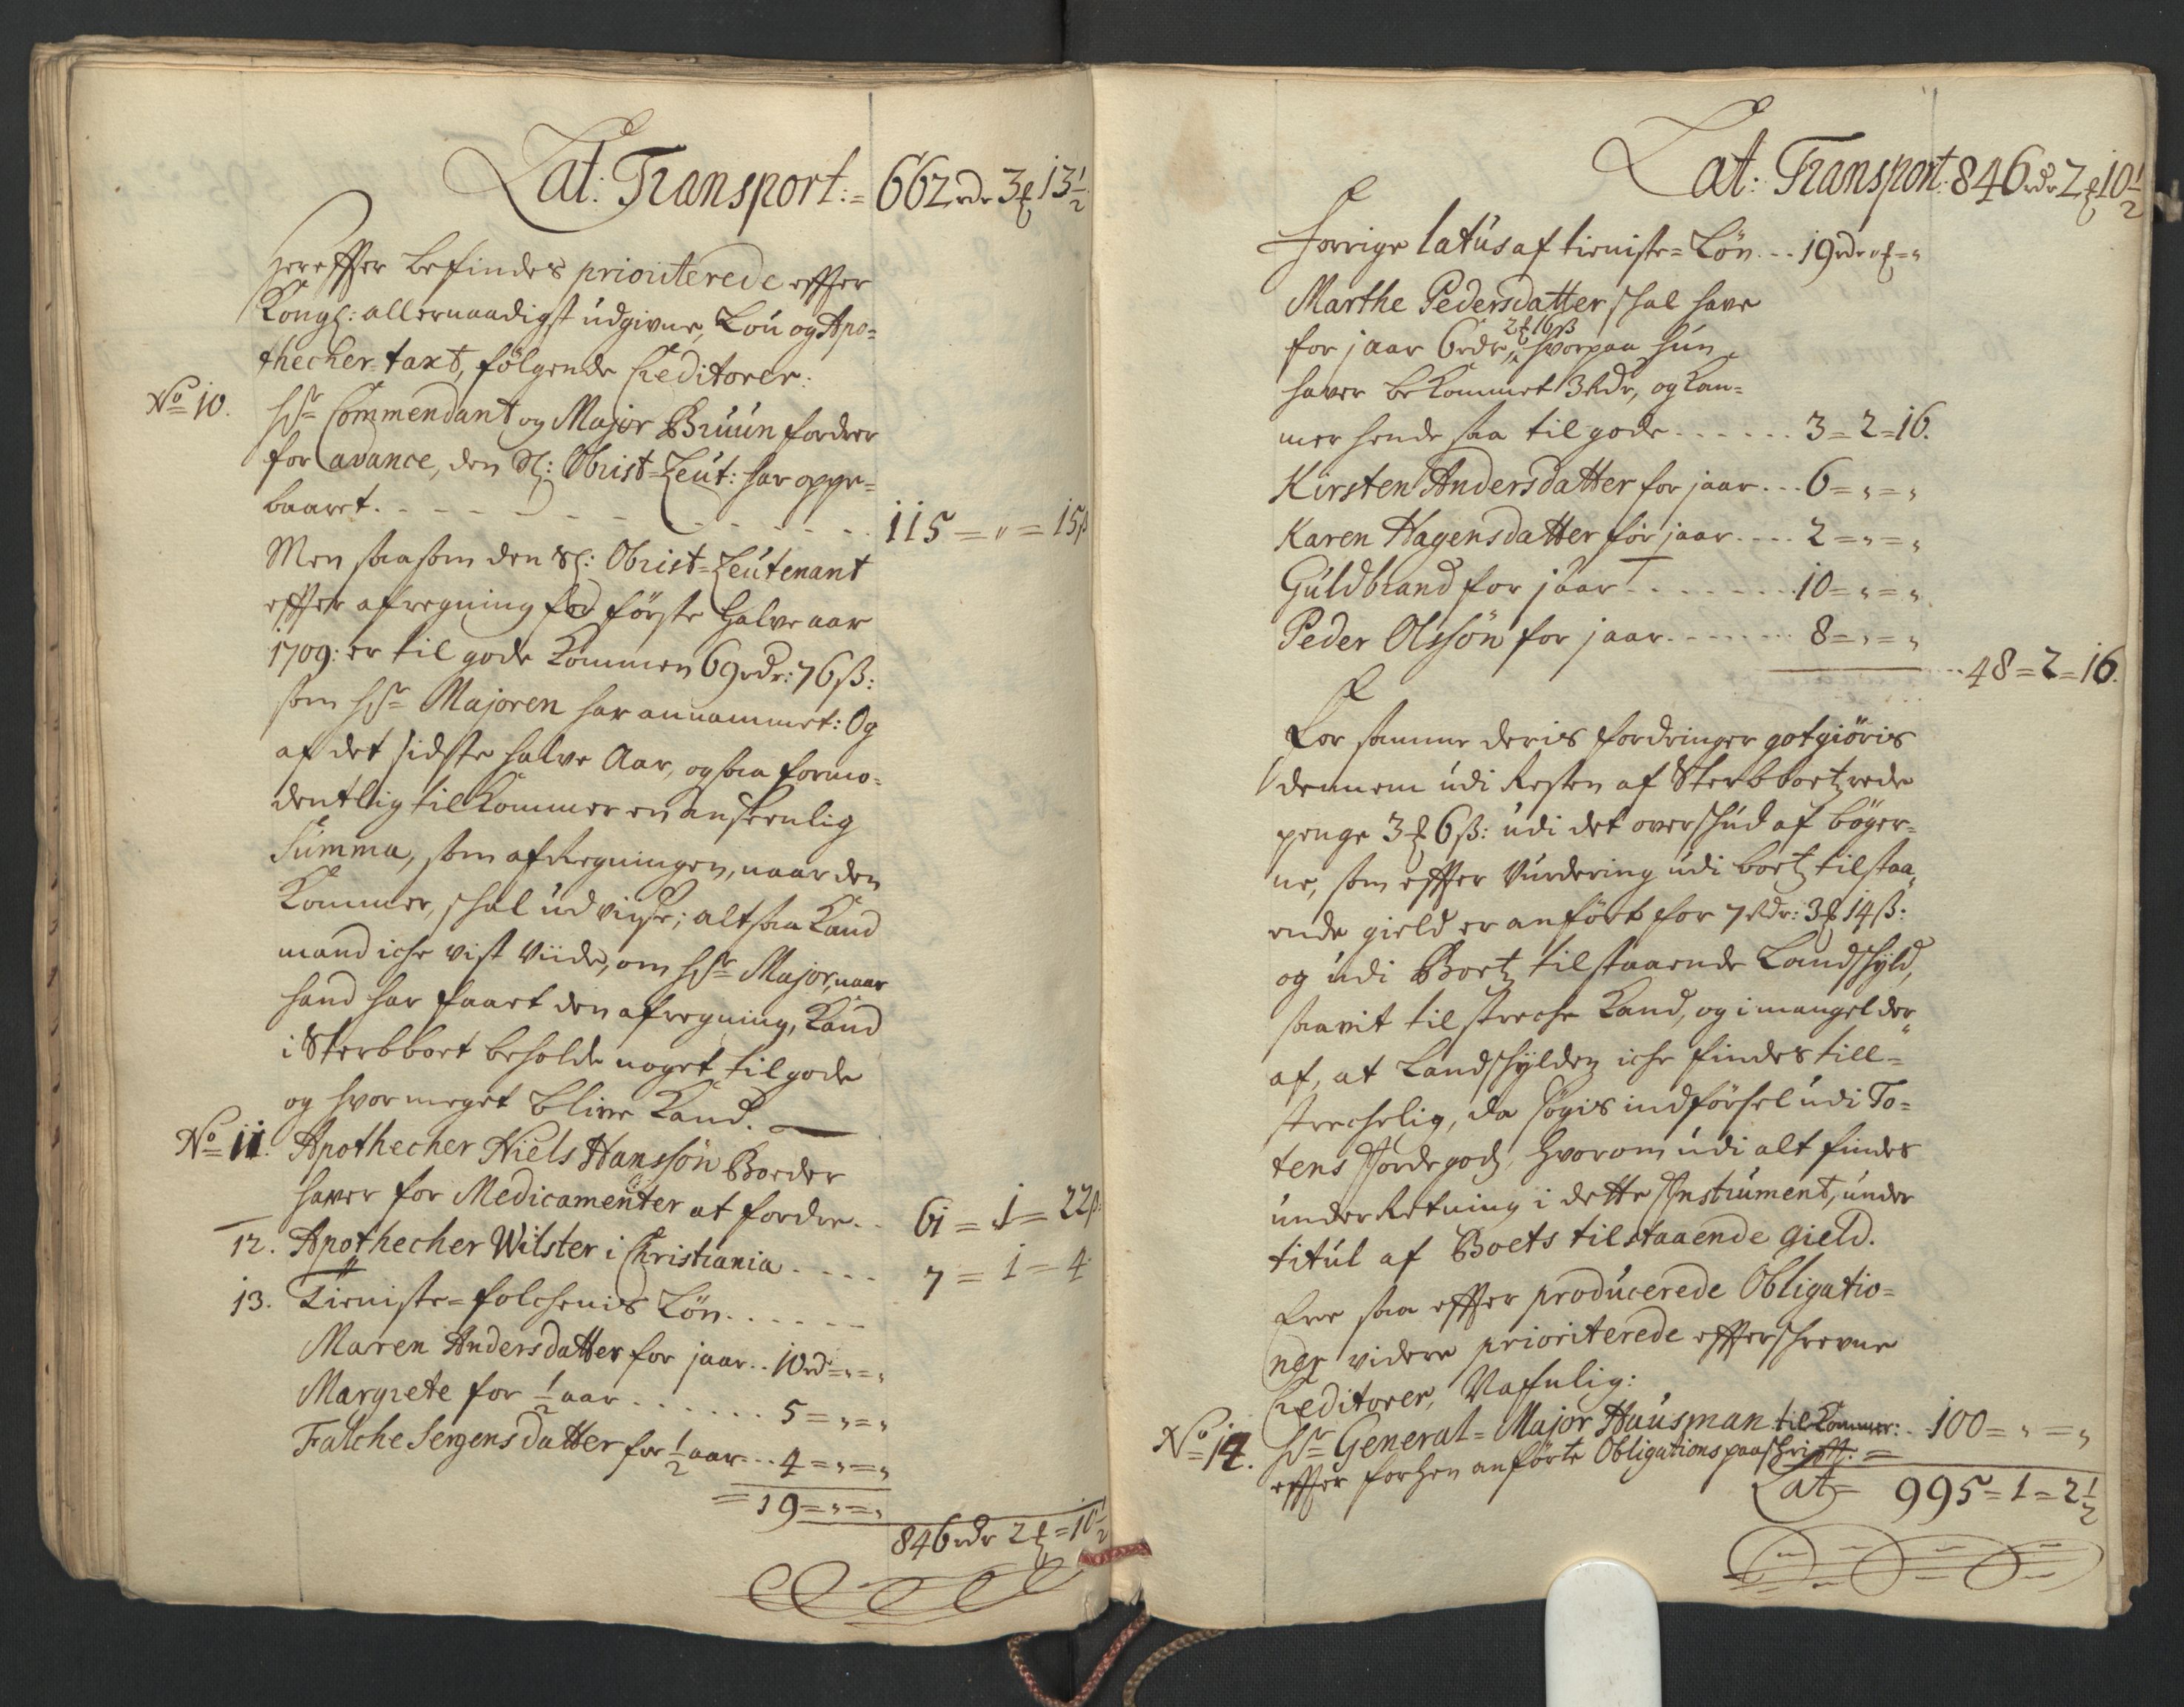 Lat: Transport:= 662 rdr 3 ₰ 13½
Hereffter befindes prioriterede effter
Kongl: allernaadigst udgivne, Lou og Apo=
thecher-taxt, følgende Creditorer:
No 10. Hr Commendant og Major Bruun fordrer
for avance, den Sl: Obrist=Leut: har oppe=
baaret. 115 = „ = 15ß
Men saasom den Sl: Obrist=Leutenant
effter afregning for første halve aar
1709: er til gode kommen 69 rdr: 76ß:
som Hr Majoren har annammet: Og
af det sidste halve Aar, ogsaa formo=
dentlig tilkommer en anseenlig
Summa, som afRegningen, naar den
kommer, schal udviise; altsaa kand
mand iche vist viide, om Hr Major, naar
hand har faaet den afregning, kand
i Sterbboet beholde noget tilgode
og hvor meget blive kand.
No 11. Apothecher Niels Hanssøn Boeder
haver for Medicamenter at fordre.. 61 = 1 = 22ß
12. Apothecher Wilster i Christiania.... 7 = 1 = 4
13. Tieniste=folchenis Løn......
Maren Andersdatter for jaar.. 10 rd = „ = „
Margrete for ½ aar...... 5 = „ = „
Falche Jergensdatter for ½ aar... 4 = „ = „
= 19 = „ = „
846 rdr 2 ₰ = 10½
Lat: Transport: 846 rdr 2 ₰ 10½
Forrige latus af tieniste=Løn... 19 rdr „ ₰ = „
Marthe Pedersdatter schal have
for jaar 6 rdr, 2 ₰ 16ß hvorpaa hun
haver bekommet 3 Rdr, og kom=
mer hende saa til gode...... 3 = 2 = 16.
Kirsten Andersdatter for jaar... 6 = „ = „
Karen Hagensdatter for jaar.... 2 = „ = „
Guldbrand for jaar........ 10 = „ = „
Peder Olssøn for jaar....... 8 = „ = „
48 = 2 = 16.
For samme deris fordringer gotgiøris
dennem udi Resten af Sterbboetz rede
penge 3 ₰ 6ß: udi det overschud af bøger=
ne, som effter Vurdering udi boetz tilstaa„
ende gield er anført for 7 Rdr: 3 ₰ 14ß:
og udi Boetz tilstaaende Landschyld,
saavit tilstreche kand, og i mangel der„
af, at Landschylden iche findes till=
strechelig, da søgis indførsel udi To=
tens Jordegodz, hvorom udi alt findes
underRetning i dette Instrument, under
titul af Boets tilstaaende Gield.
Ere saa effter producerede Obligatio=
ner videre prioriterede effterschrevne
Creditorer, Nafnlig:
No 14. Hr General=Major Hausman tilkommer:.. 100 = „ = „
effter forhen anførte Obligations paaschrifft. =
Lat= 995 = 1 = 2½